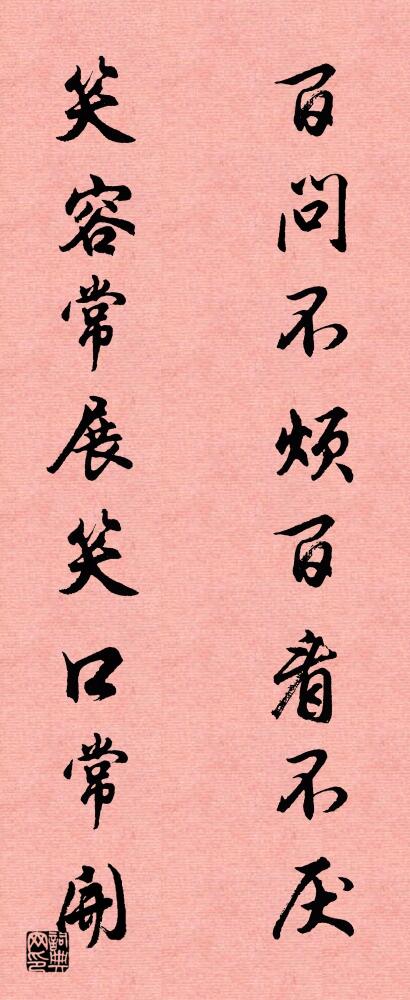 百问不烦百看不厌
笑容常展笑口常开
词典网印